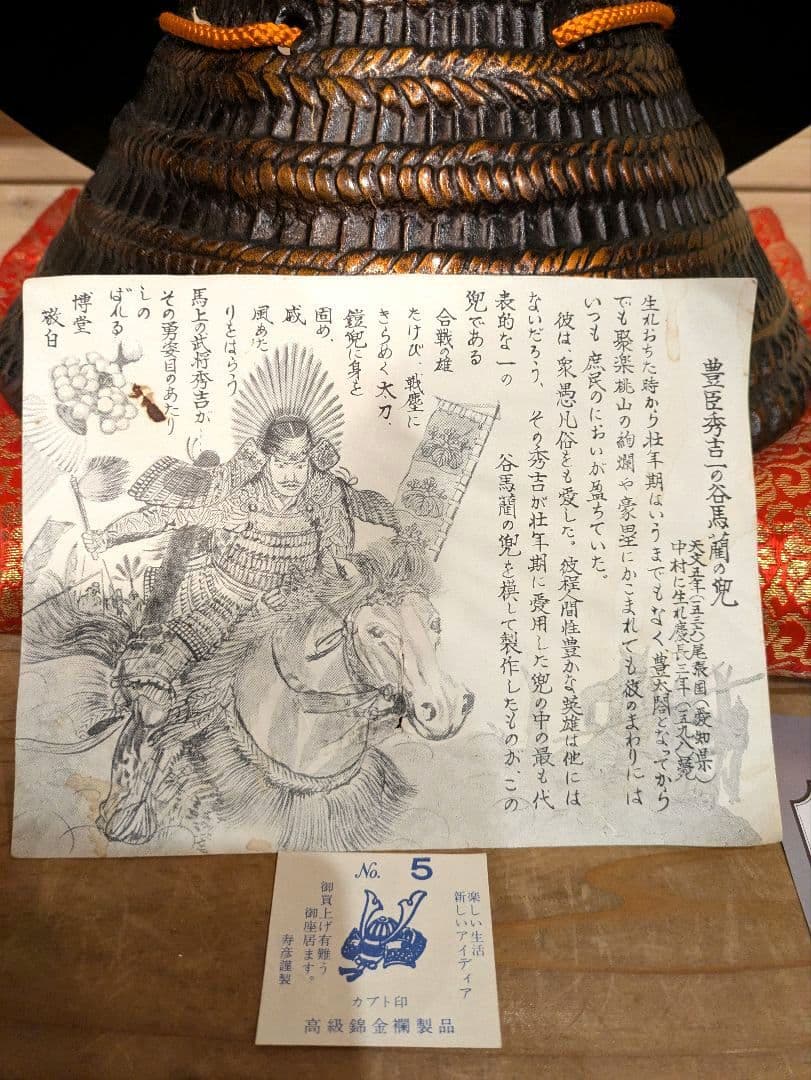 豊臣秀吉一の谷馬藺の兜
天文五年(一五三六)尾張国(愛知県)
中村に生れ慶長三年(一五九八)薨
生れおちた時から壮年期はいうまでもなく、豊太閤となってから
でも聚楽桃山の絢爛や豪壘にかこまれても彼のまわりには
いつも庶民のにおいが盈ちていた。
彼は、衆愚凡俗をも愛した。彼程人間性豊かな英雄は他には
ないだろう、その秀吉が壮年期に愛用した兜の中の最も代
表的な一の谷馬藺の兜を模して製作したものが、この
兜である
合戦の雄
たけび、戦塵に
きらめく太刀、
鎧兜に身を
固め、
威
風あた
りをはらう
馬上の武将秀吉が
その勇姿目のあたり
しの
ばれる
博堂
敬白
No. 5
楽しい生活
新しいアイディア
御買上げ有難う
御座居ます。
寿彦謹製
カブト印
高級錦金襴製品